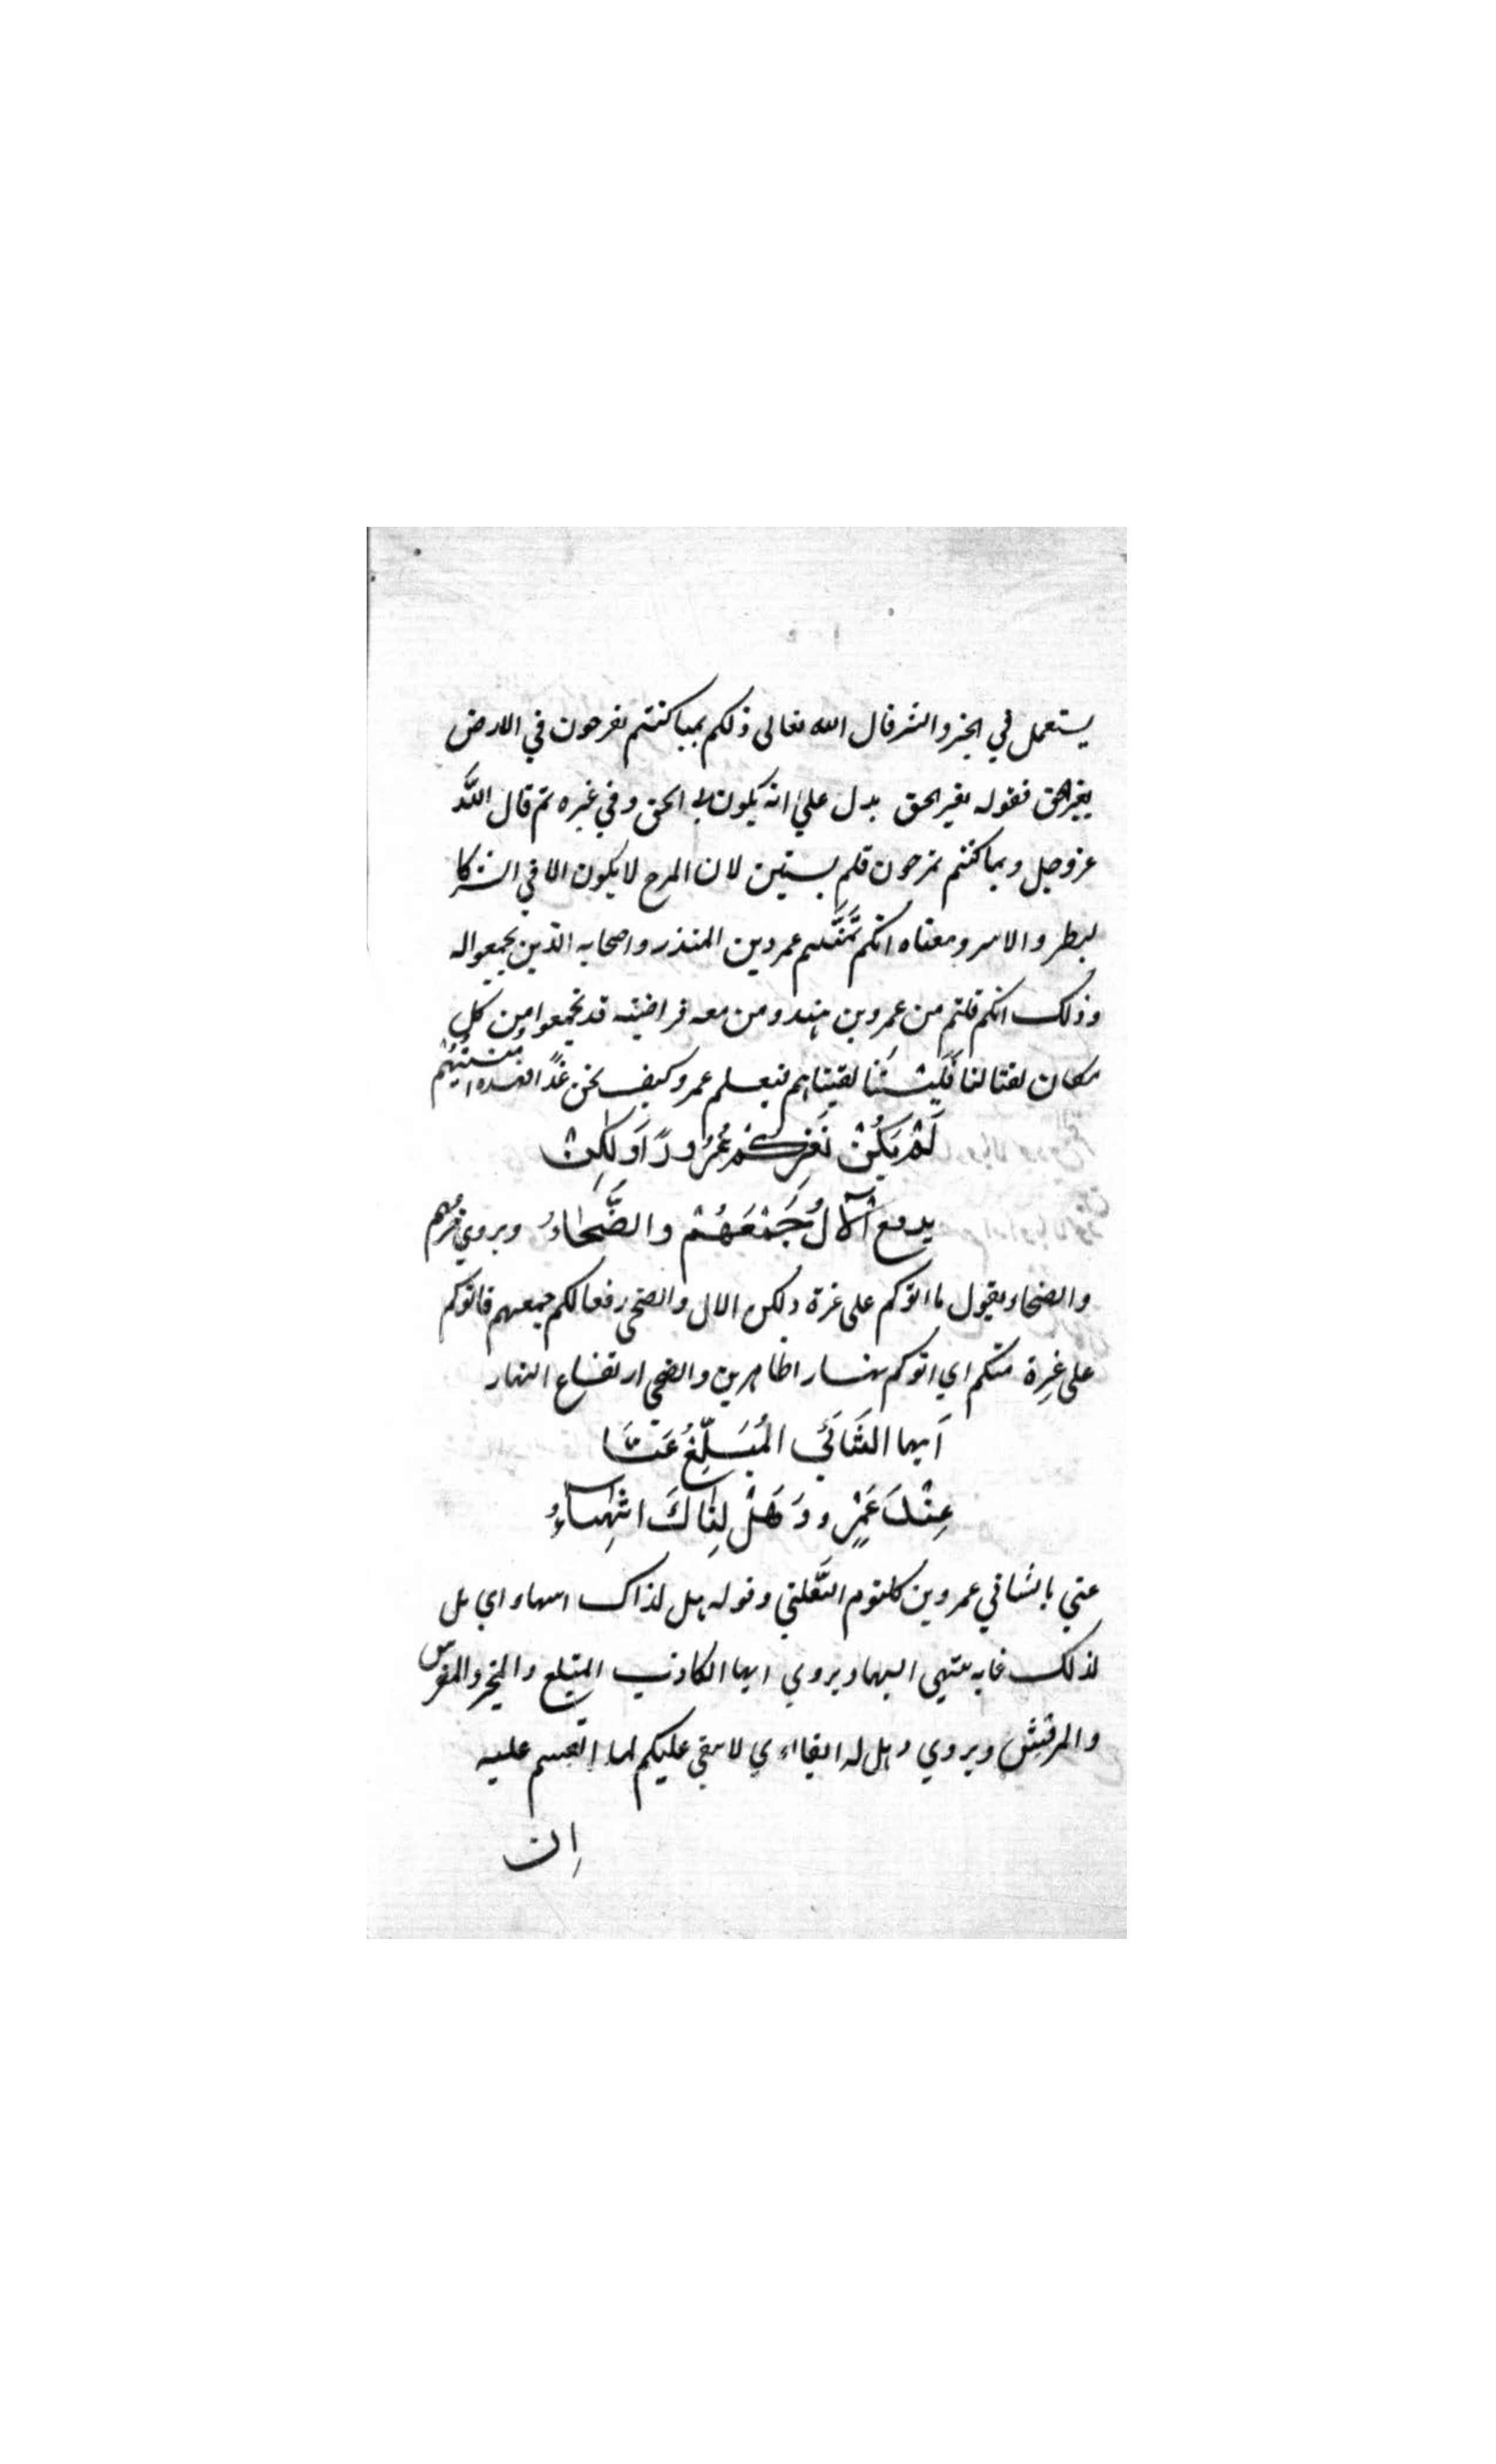 يستعمل في الخير والشر قال الله تعالى ذلكم بما كنتم تفرحون في الارض
بغير الحق فقوله بغير الحق يدل على انه يكون في الحق وفي غيره ثم قال الله
عز وجل وبما كنتم تمرحون فلم يستثن لان المرح لا يكون الا في الشر كا
لبطر والاشر ومعناه انكم تمنيتم عمرو بن المنذر واصحابه الذين تجمعوا له
وذلك انكم قلتم من عمرو بن هند ومن معه قراضبته قد تجمعوا من كل
مكان لقتالنا فليتنا لقيناهم فيعلم عمرو كيف نحن غدًا
لَمْ يَكُنْ عمرو ولكِنْ
يدفع الآلُ جَمْعَهُمْ والضَّحَاءُ ويروى
والضحاء يقول ما اتوكم على غرة ولكن الال والضحى رفعا لكم جمعهم فاتوكم
على غِرة منكم اي اتوكم نهارا ظاهرين والضحى ارتفاع النهار
اَيها الشَانَي المُبَلِّغُ عَنَّا
عِنْدَ عَمْرٍو وَ هَلْ لِذَاكَ انْتِهَاءُ
عني بالشاني عمرو بن كلثوم التَّغلبي وقوله هل لذاك انتهاء اي هل
لذلك غاية ينتهي اليها ويروى ايها الكاذب المبلغ والمخبر
والمرقِّش ويروي وهل له ابقاء اي لا يبقي عليكم لما عليه
اِن